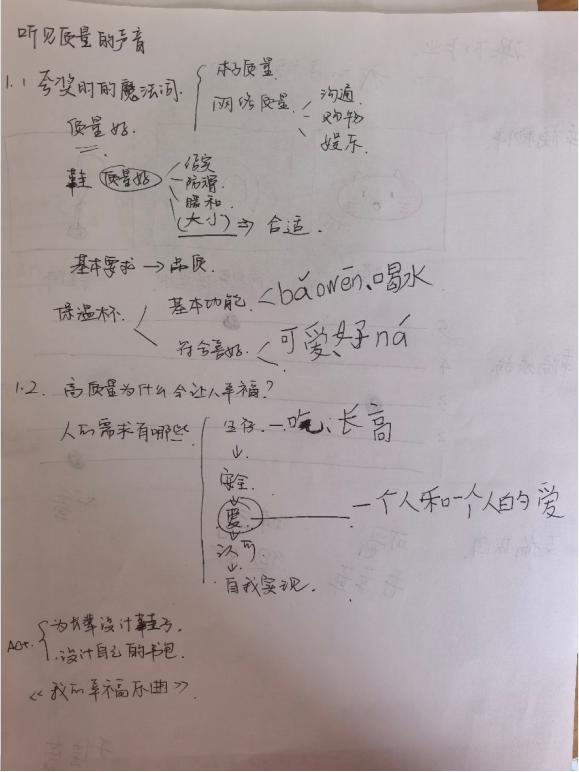 听见质量的声音
1.1 夸奖时的魔法词.
质量好.
本子质量.
网络质量
沟通
购物
娱乐.
鞋 质量好
结实
防滑.
暖和
(大小) ⇒ 合适.
基本要求 → 品质.
保温杯.
基本功能.
bǎowēn、喝水
符合喜好.
可爱、好ná
1.2. 高质量为什么会让人幸福?
人的需求有哪些
生存. — 吃、长高
↓
安全
↓
爱 — 一个人和一个人的爱
↓
认可.
↓
自我实现.
Act.
为长辈设计鞋子.
设计自己的书包.
《我的幸福乐曲》